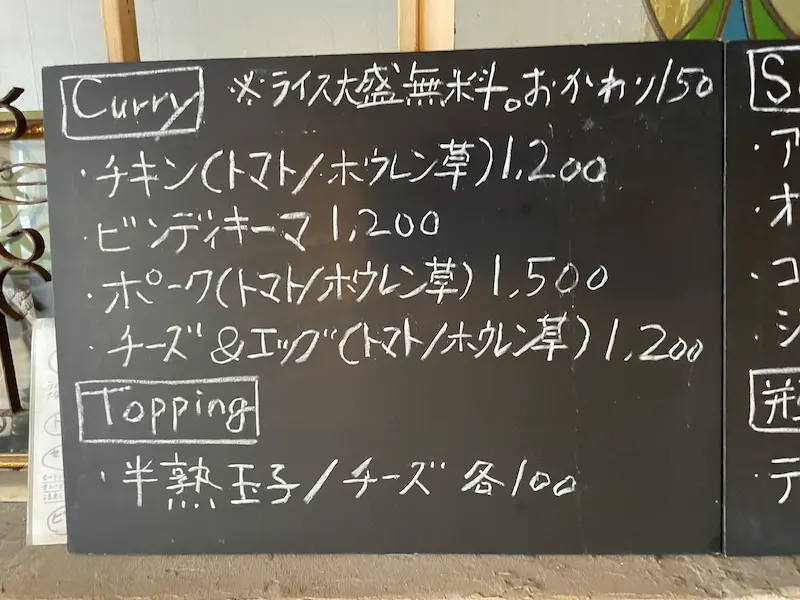 Curry ※ライス大盛無料。おかわり150
・チキン(トマト/ホウレン草)1,200
・ビンディキーマ1,200
・ポーク(トマト/ホウレン草)1,500
・チーズ&エッグ(トマト/ホウレン草)1,200
Topping
・半熟玉子/チーズ 各100